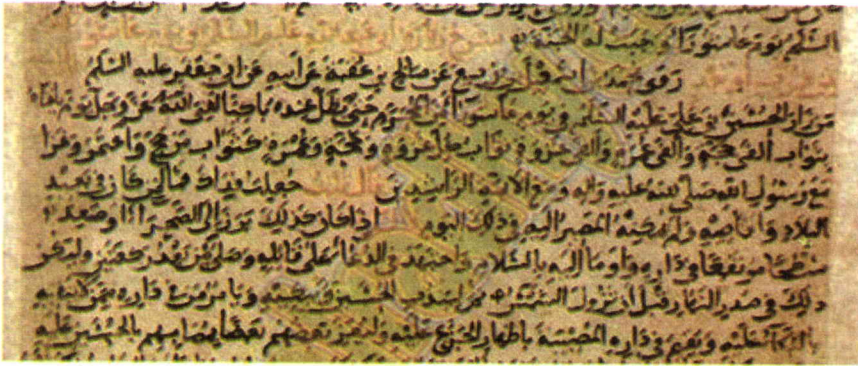 السلم يوم عاشورا وجبت له الجنة
روى محمد بن اسمعيل بن بزيع عن صالح بن عقبة عن ابيه عن ابي جعفر عليه السلم
من زار الحسين بن علي عليه السلم في يوم عاشورا من المحرم حتى يظل عنده باكيا لقي الله عز وجل يوم يلقاه
بثواب الفي حجة والفي عمرة والفي غزوة ثواب كل غزوة وحجة وعمرة كثواب من حج واعتمر وغزا
مع رسول الله صلى الله عليه واله ومع الائمة الراشدين قال قلت جعلت فداك فما لمن كان في بعيد
البلاد واقاصيه ولم يمكنه المصير اليه في ذلك اليوم اذا كان كذلك برز الى الصحراء او صعد
سطحا مرتفعا في داره واوما اليه بالسلام واجتهد في الدعاء على قاتله وصلى من بعد ركعتين وليكن
ذلك في صدر النهار قبل ان تزول الشمس ثم ليندب الحسين ويبكيه ويامر من في داره ممن لا يتقيه
بالبكاء عليه ويقيم في داره المصيبة باظهار الجزع عليه وليعز بعضهم بعضا بمصابهم بالحسين عليه